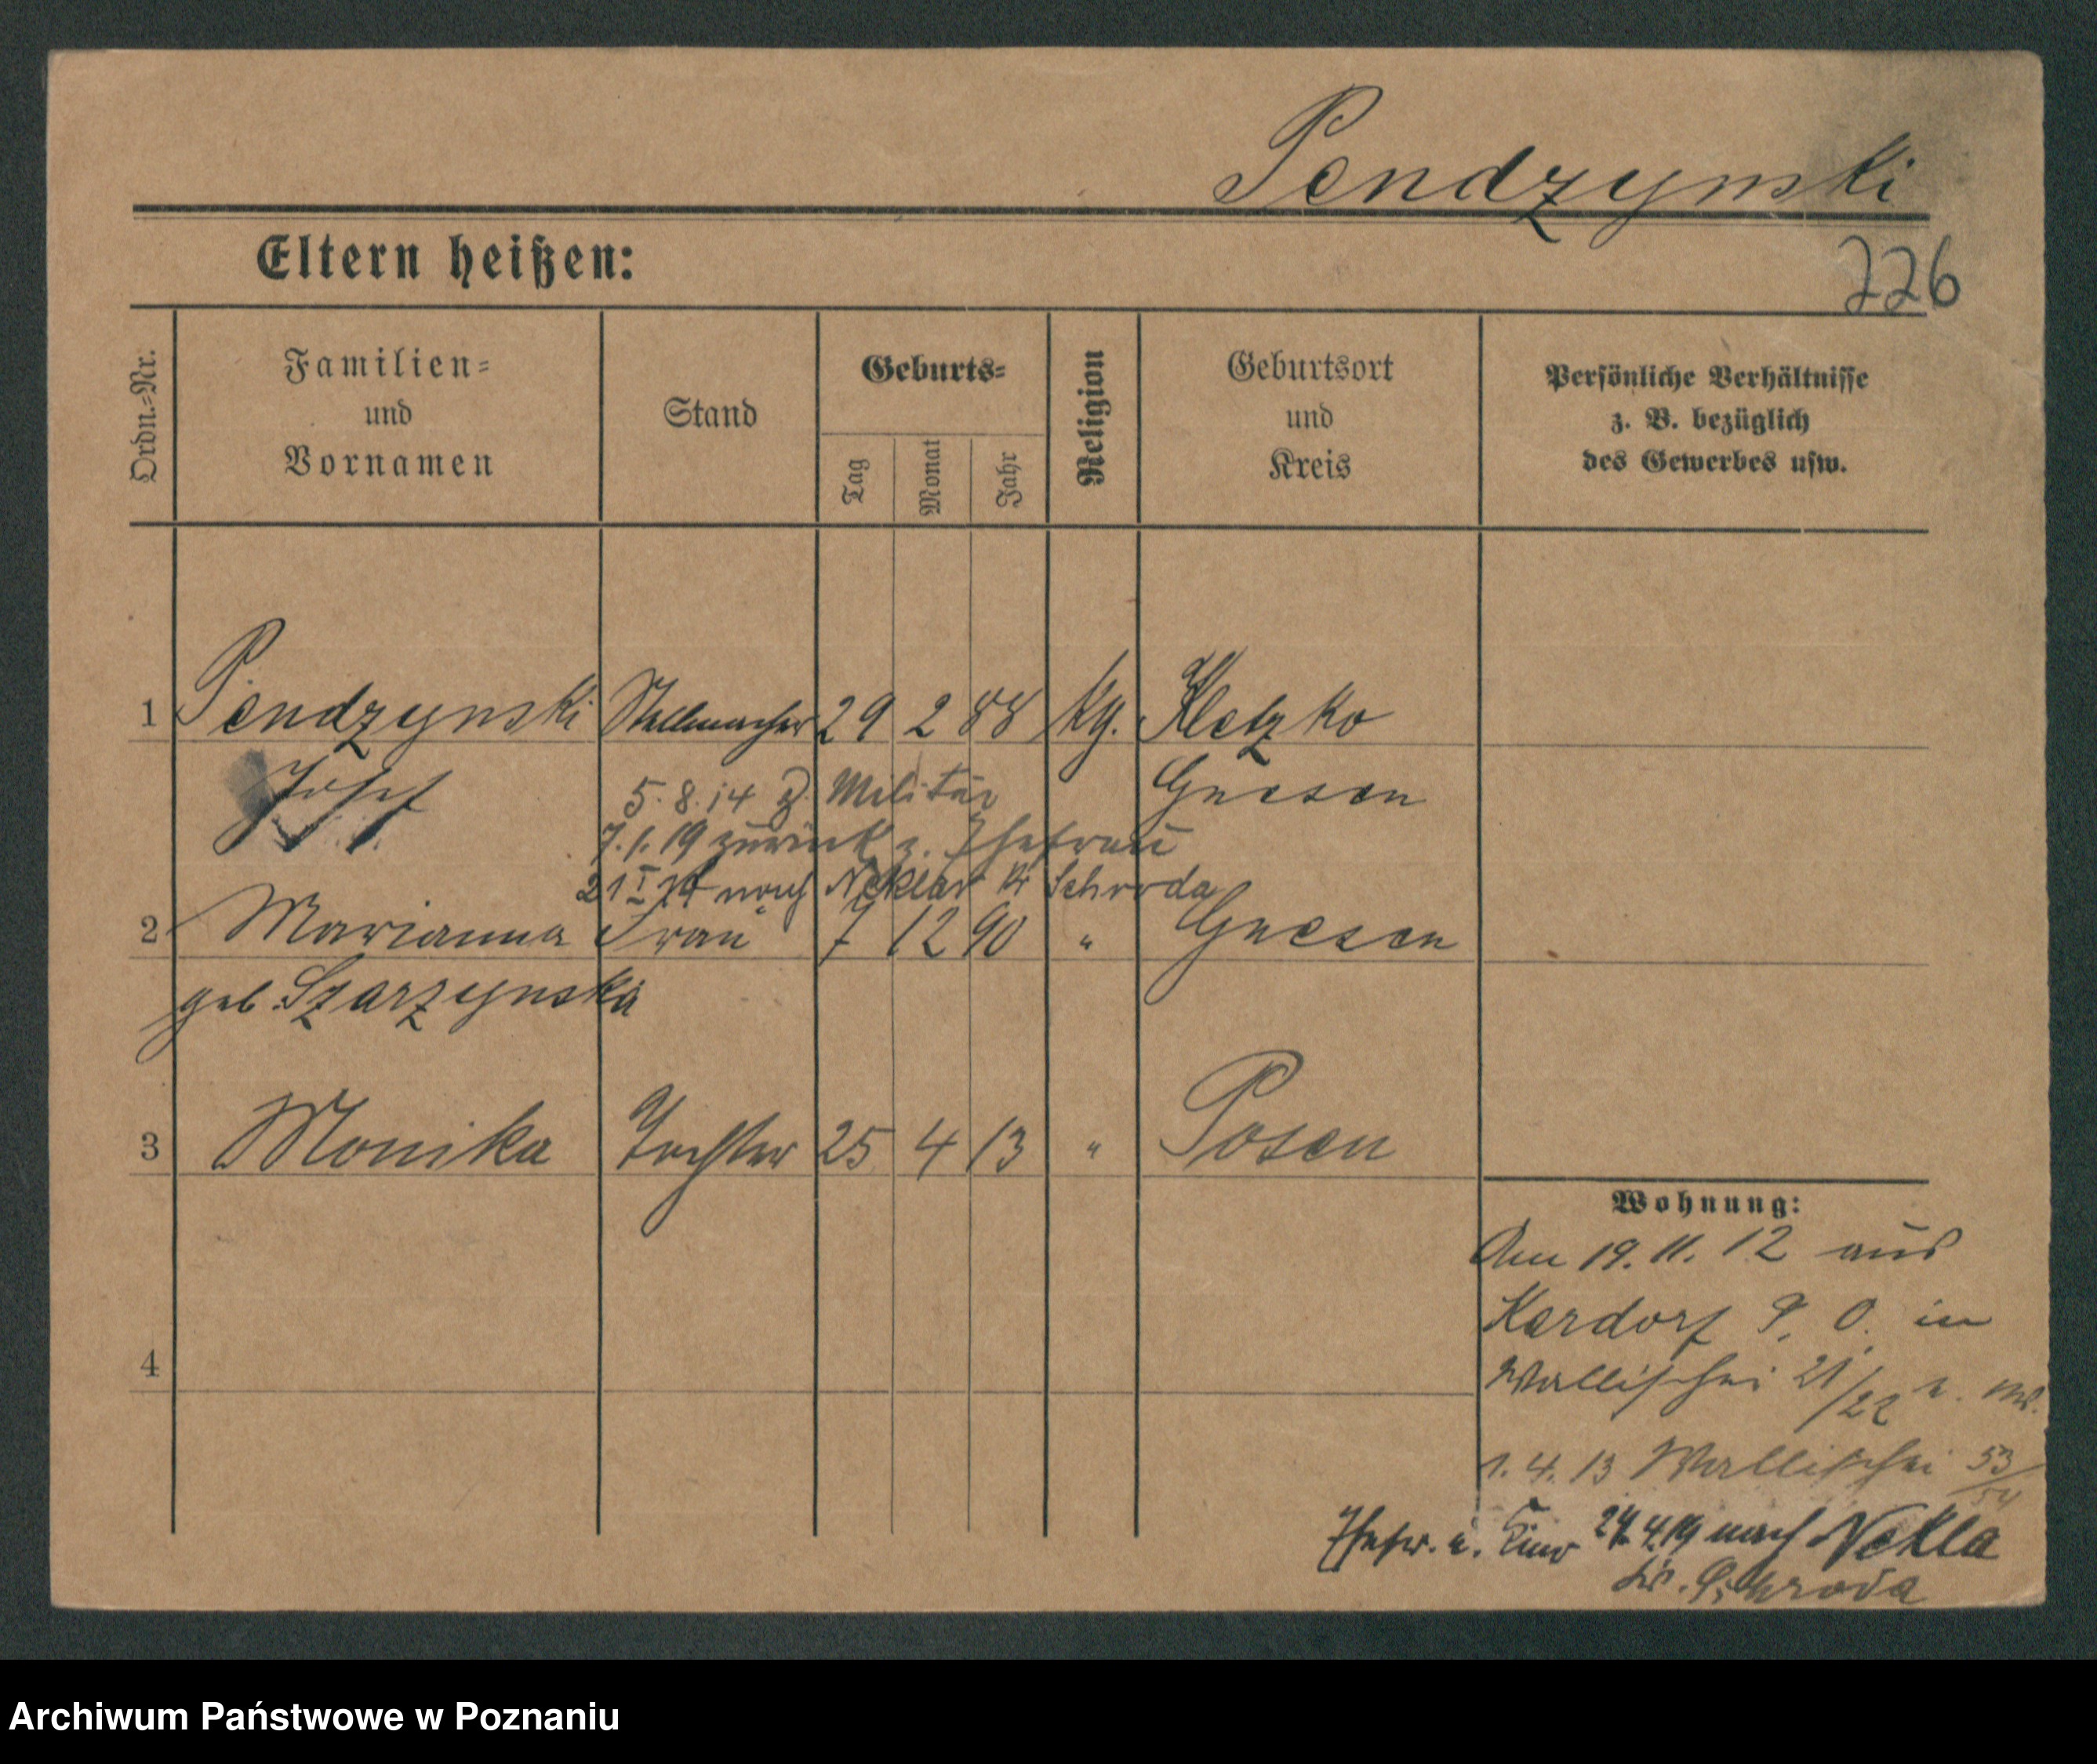 Pendzynski
Eltern heißen:
226
Ordn.-Nr.
Familien-
und
Vornamen
Stand
Geburts-
Tag
Monat
Jahr
Religion
Geburtsort
und
Kreis
Persönliche Verhältnisse
z. B. bezüglich
des Gewerbes usw.
1 Pendzynski Stellmacher 29 2 88 kg. Kletzko
Josef 5. 8. 14 z. Militär Gnesen
7. 1. 19 zurück z. Ehefrau
21 I nach Neklar Kr Schroda
2 Marianna Frau 7 12 90 " Gnesen
geb. Szarzynska
3 Monika Tochter 25 4 13 " Posen
4
Wohnung:
Am 19. 11. 12 aus
Kardorf P. O. in
Wallischei 21/22
1. 4. 13 Wallischei 53/54
Ehefr. u. Kind 24.4.19 nach Nekla
Kr. Schroda
Archiwum Państwowe w Poznaniu